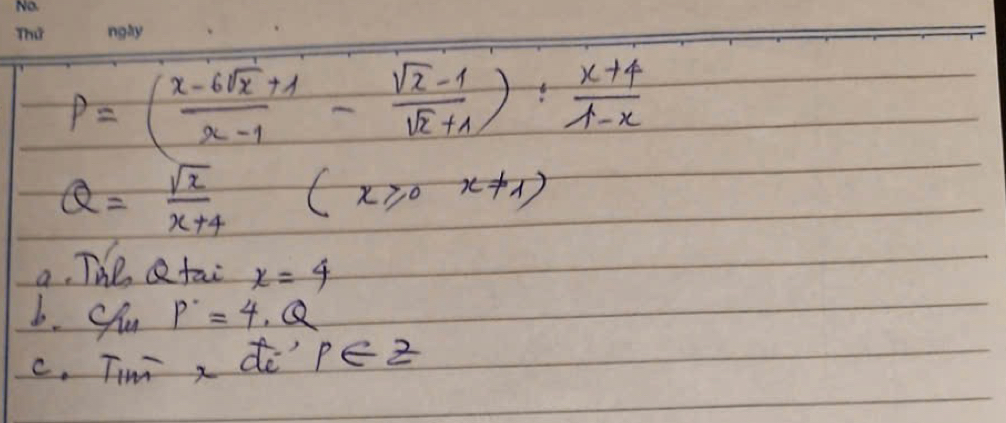 No.
Thứ ngày
P = ( (x - 6√x + 1)/(x - 1) - (√x - 1)/(√x + 1) ) : (x + 4)/(1 - x)
Q = √x/(x + 4) ( x ≥ 0 x ≠ 1 )
a. Tính Q tại x = 4
b. C/m P = 4. Q
c. Tìm x để P ∈ Z